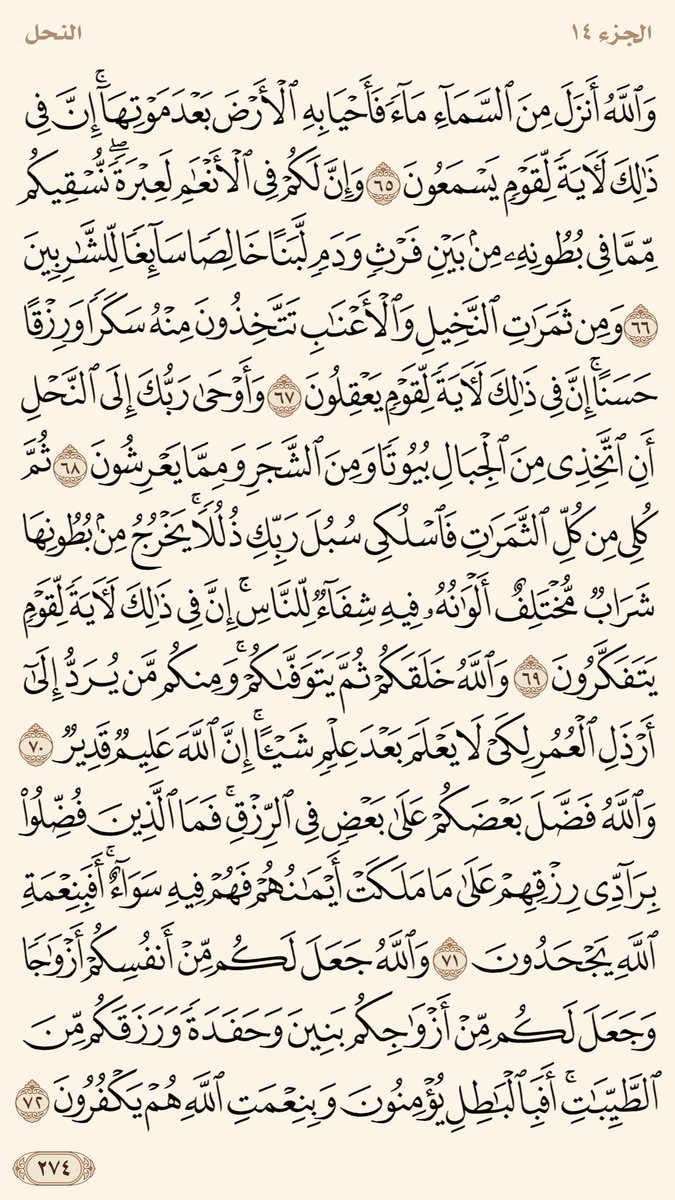 الجزء ١٤
النحل
وَٱللَّهُ أَنزَلَ مِنَ ٱلسَّمَآءِ مَآءً فَأَحْيَا بِهِ ٱلْأَرْضَ بَعْدَ مَوْتِهَآ ۚ إِنَّ فِى
ذَٰلِكَ لَـَٔايَةً لِّقَوْمٍ يَسْمَعُونَ ٦٥ وَإِنَّ لَكُمْ فِى ٱلْأَنْعَـٰمِ لَعِبْرَةً ۖ نُّسْقِيكُم
مِّمَّا فِى بُطُونِهِۦ مِنۢ بَيْنِ فَرْثٍ وَدَمٍ لَّبَنًا خَالِصًا سَآئِغًا لِّلشَّـٰرِبِينَ
٦٦ وَمِن ثَمَرَٰتِ ٱلنَّخِيلِ وَٱلْأَعْنَـٰبِ تَتَّخِذُونَ مِنْهُ سَكَرًا وَرِزْقًا
حَسَنًا ۗ إِنَّ فِى ذَٰلِكَ لَـَٔايَةً لِّقَوْمٍ يَعْقِلُونَ ٦٧ وَأَوْحَىٰ رَبُّكَ إِلَى ٱلنَّحْلِ
أَنِ ٱتَّخِذِى مِنَ ٱلْجِبَالِ بُيُوتًا وَمِنَ ٱلشَّجَرِ وَمِمَّا يَعْرِشُونَ ٦٨ ثُمَّ
كُلِى مِن كُلِّ ٱلثَّمَرَٰتِ فَٱسْلُكِى سُبُلَ رَبِّكِ ذُلُلًا ۚ يَخْرُجُ مِنۢ بُطُونِهَا
شَرَابٌ مُّخْتَلِفٌ أَلْوَٰنُهُۥ فِيهِ شِفَآءٌ لِّلنَّاسِ ۗ إِنَّ فِى ذَٰلِكَ لَـَٔايَةً لِّقَوْمٍ
يَتَفَكَّرُونَ ٦٩ وَٱللَّهُ خَلَقَكُمْ ثُمَّ يَتَوَفَّىٰكُمْ ۚ وَمِنكُم مَّن يُرَدُّ إِلَىٰٓ
أَرْذَلِ ٱلْعُمُرِ لِكَىْ لَا يَعْلَمَ بَعْدَ عِلْمٍ شَيْـًٔا ۚ إِنَّ ٱللَّهَ عَلِيمٌ قَدِيرٌ ٧٠
وَٱللَّهُ فَضَّلَ بَعْضَكُمْ عَلَىٰ بَعْضٍ فِى ٱلرِّزْقِ ۚ فَمَا ٱلَّذِينَ فُضِّلُوا۟
بِرَآدِّى رِزْقِهِمْ عَلَىٰ مَا مَلَكَتْ أَيْمَـٰنُهُمْ فَهُمْ فِيهِ سَوَآءٌ ۚ أَفَبِنِعْمَةِ
ٱللَّهِ يَجْحَدُونَ ٧١ وَٱللَّهُ جَعَلَ لَكُم مِّنْ أَنفُسِكُمْ أَزْوَٰجًا
وَجَعَلَ لَكُم مِّنْ أَزْوَٰجِكُم بَنِينَ وَحَفَدَةً وَرَزَقَكُم مِّنَ
ٱلطَّيِّبَـٰتِ ۚ أَفَبِٱلْبَـٰطِلِ يُؤْمِنُونَ وَبِنِعْمَتِ ٱللَّهِ هُمْ يَكْفُرُونَ ٧٢
٢٧٤